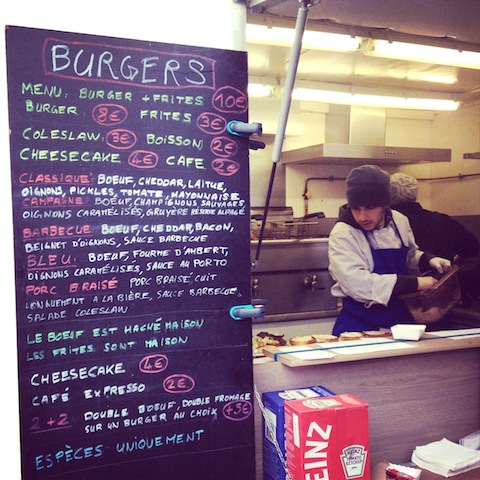 BURGERS
MENU: BURGER + FRITES 10€
BURGER 8€ FRITES 3€
COLESLAW 3€ BOISSON 2€
CHEESECAKE 4€ CAFE 2€
CLASSIQUE: BOEUF, CHEDDAR, LAITUE,
OIGNONS, PICKLES, TOMATE, MAYONNAISE
CAMPAGNE: BOEUF, CHAMPIGNONS SAUVAGES,
OIGNONS CARAMÉLISÉS, GRUYÈRE RÉSERVE ALPAGE
BARBECUE: BOEUF, CHEDDAR, BACON,
BEIGNET D'OIGNONS, SAUCE BARBECUE
BLEU: BOEUF, FOURME D'AMBERT,
OIGNONS CARAMÉLISES, SAUCE AU PORTO
PORC BRAISÉ: PORC BRAISÉ CUIT
LONGUEMENT A LA BIÈRE, SAUCE BARBECUE,
SALADE COLESLAW
LE BOEUF EST HACHÉ MAISON
LES FRITES SONT MAISON
CHEESECAKE 4€
CAFÉ EXPRESSO 2€
2+2 DOUBLE BOEUF, DOUBLE FROMAGE
SUR UN BURGER AU CHOIX +5€
ESPÈCES UNIQUEMENT
HEINZ
HEINZ
TOMATO
KETCHUP